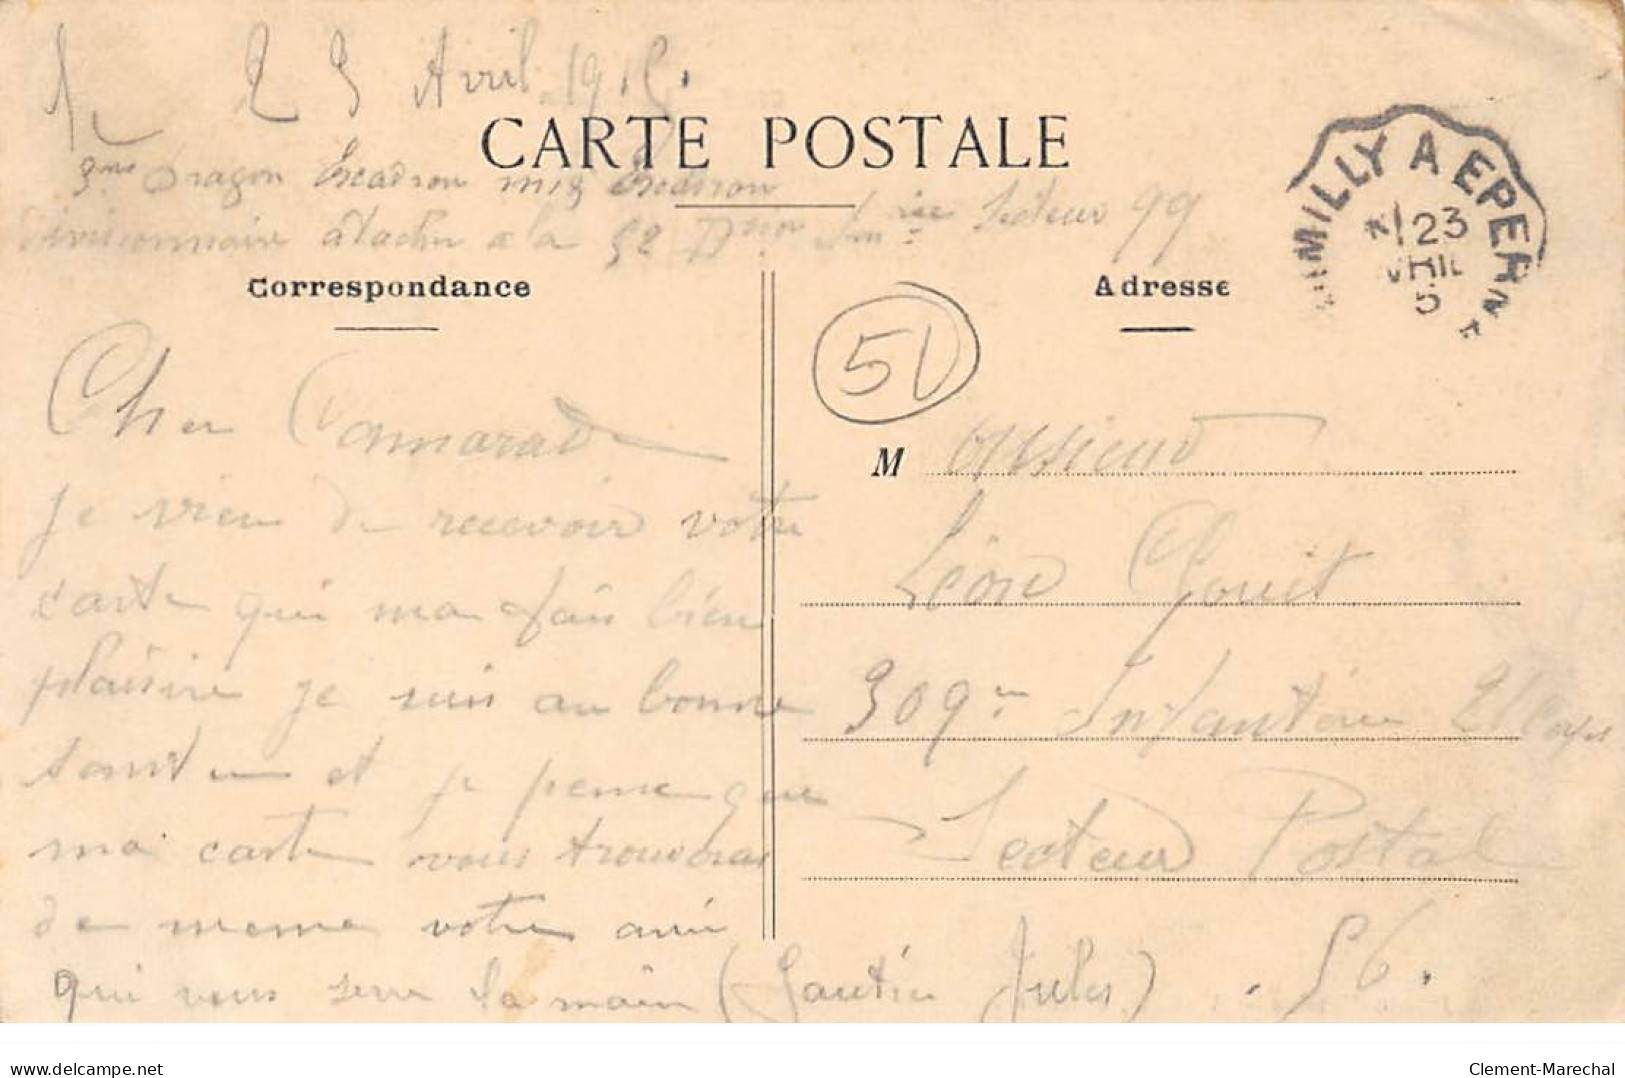 Le 23 Avril 1915.
CARTE POSTALE
3me Dragon Escadron mis Escadron
divisionnaire atacher a la 52 Dion Inrie Secteur 99
ROMILLY A EPERN
23
AVRIL
5
Correspondance
Adresse
51
Cher Camarade
Je vien de recevoir votre
carte qui ma fais bien
plaisire je suis au bonne
santée et je pense que
ma carte vous trouveras
de meme votre ami
qui vous serre la main (Gautié Jules)
Monsieur
Léon Clouit
309me Infanterie 21 Cie
Secteur Postal
. 56.
www.delcampe.net
Clement-Marechal